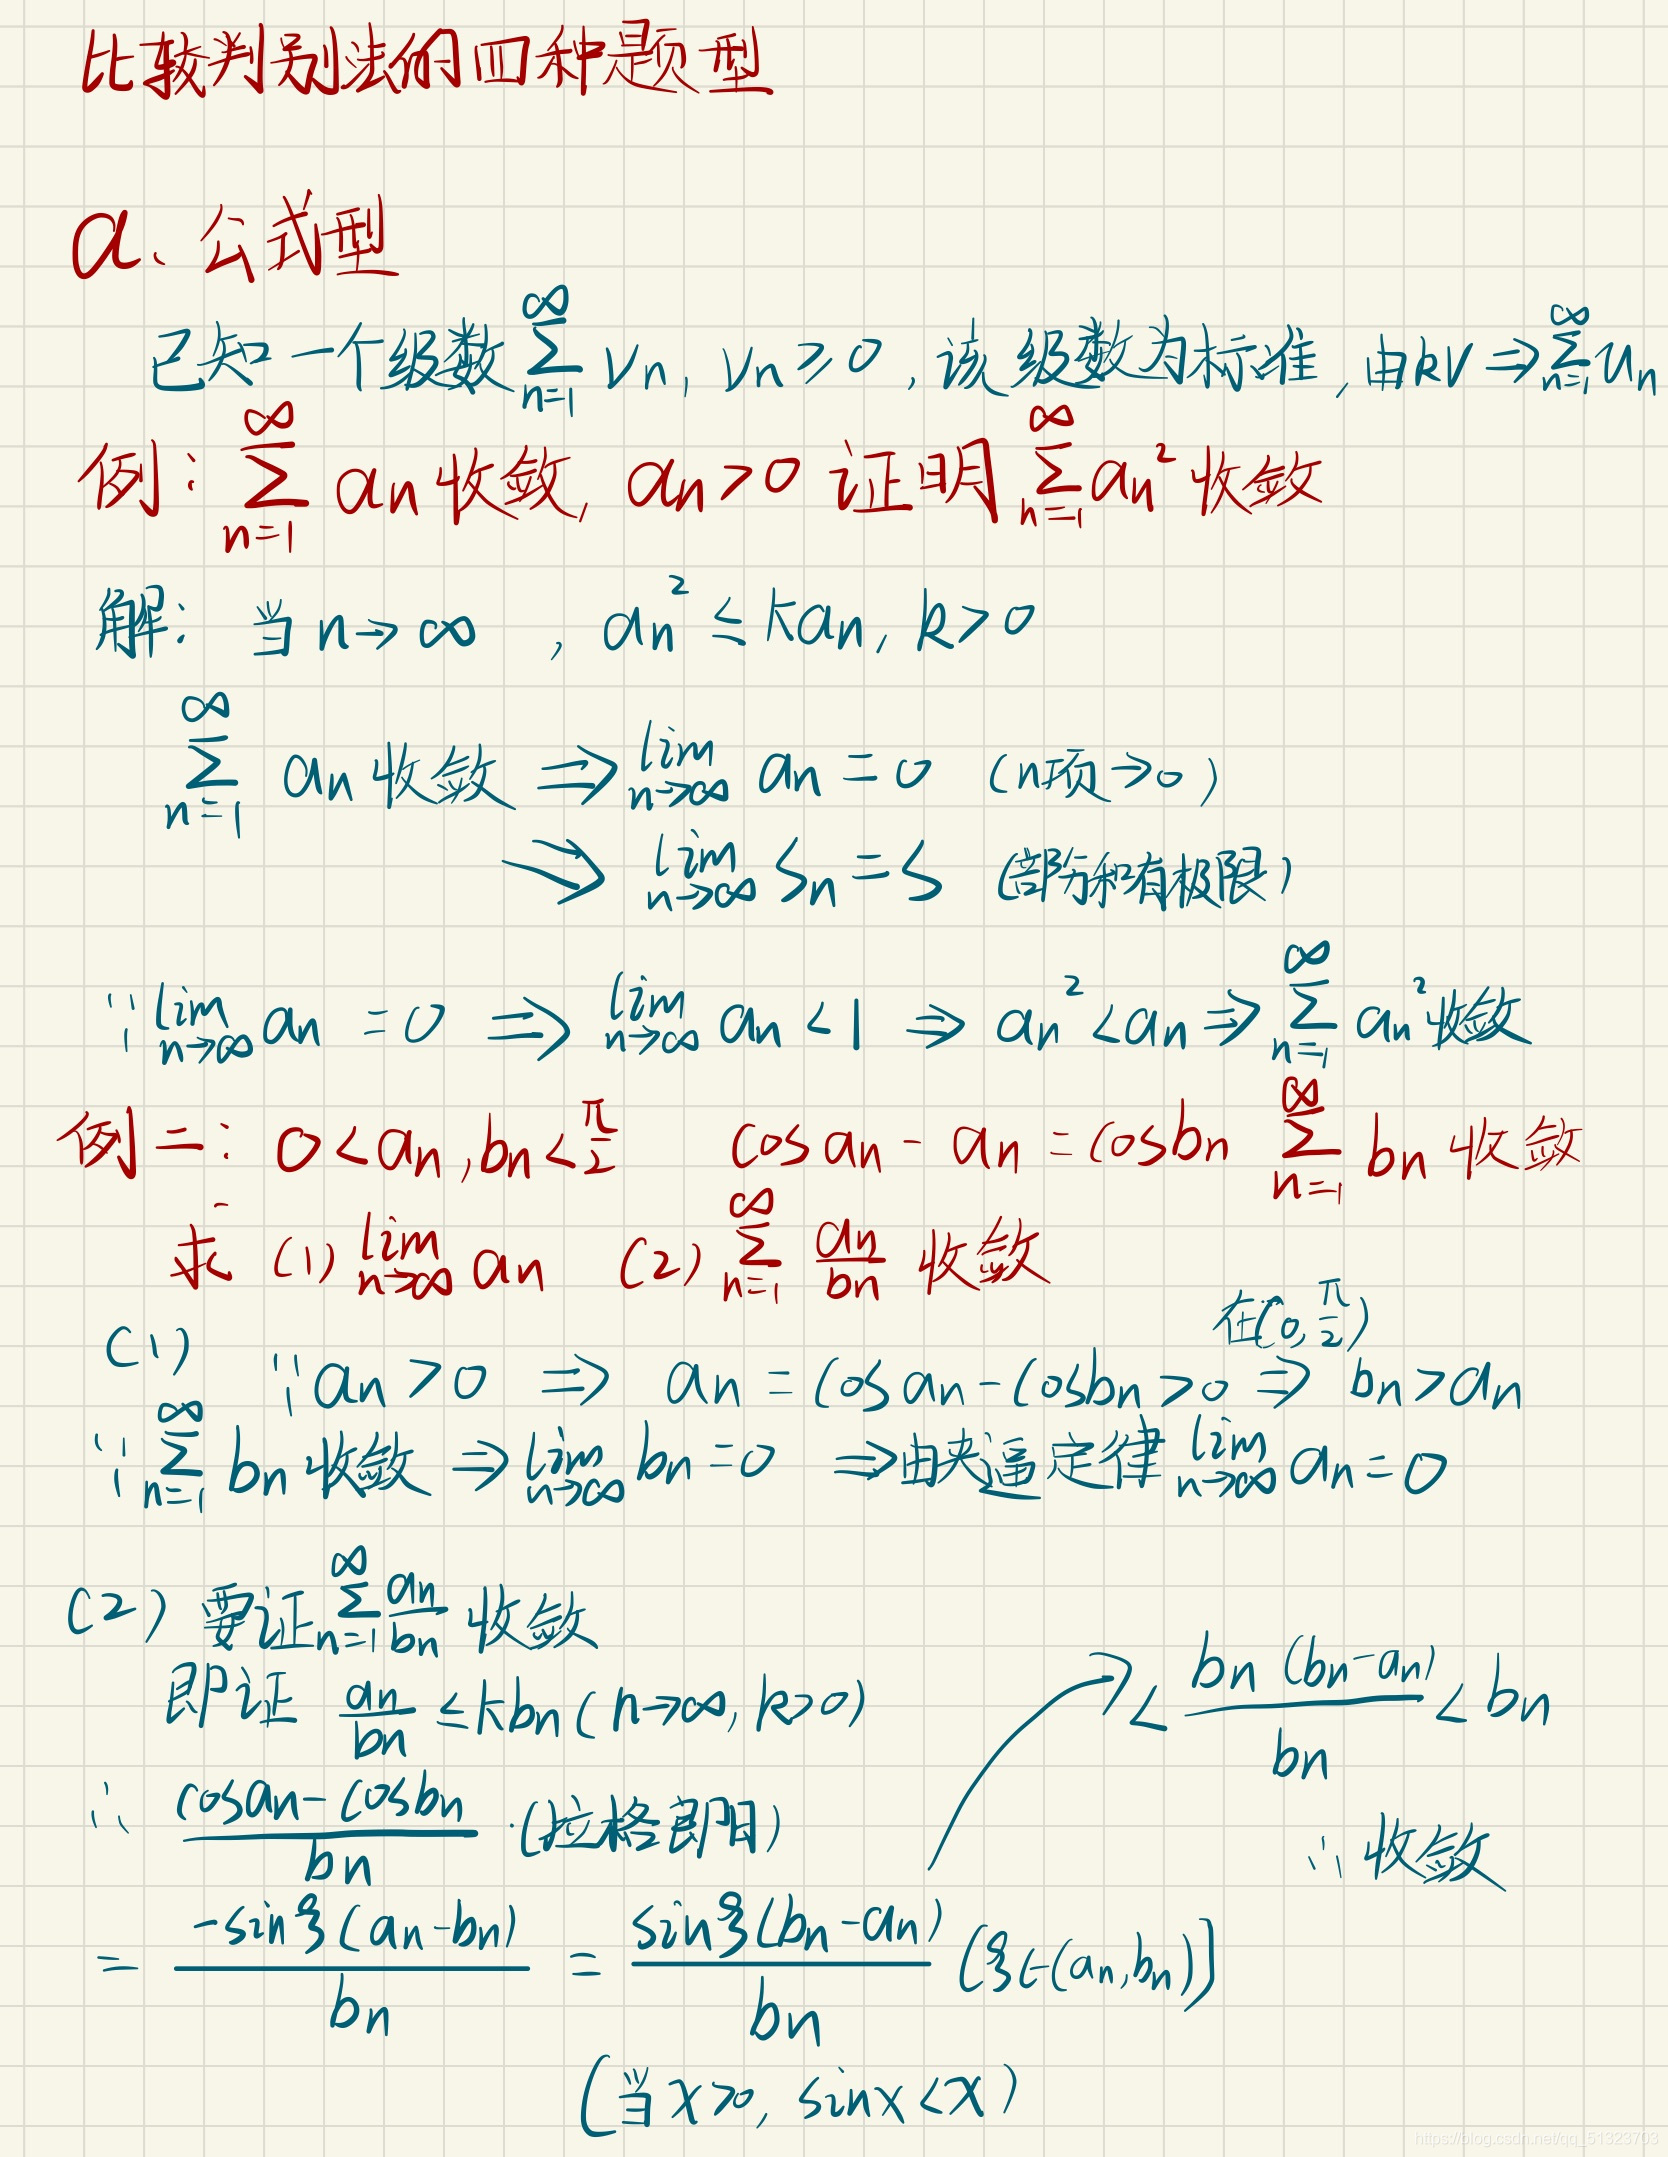 比较判别法的四种题型
a、公式型
已知一个级数 ∑_{n=1}^{∞} Vn, Vn ≥ 0, 该级数为标准, 由kV ⇒ ∑_{n=1}^{∞} un
例: ∑_{n=1}^{∞} an 收敛, an > 0 证明 ∑_{n=1}^{∞} an² 收敛
解: 当 n→∞ , an² ≤ kan, k > 0
∑_{n=1}^{∞} an 收敛 ⇒ lim_{n→∞} an = 0 (n项→0)
⇒ lim_{n→∞} Sn = S (部分和有极限)
∵ lim_{n→∞} an = 0 ⇒ lim_{n→∞} an < 1 ⇒ an² < an ⇒ ∑_{n=1}^{∞} an² 收敛
例二: 0 < an, bn < π/2 cos an - an = cos bn ∑_{n=1}^{∞} bn 收敛
求 (1) lim_{n→∞} an (2) ∑_{n=1}^{∞} an/bn 收敛
在(0, π/2)
(1) ∵ an > 0 ⇒ an = cos an - cos bn > 0 ⇒ bn > an
∵ ∑_{n=1}^{∞} bn 收敛 ⇒ lim_{n→∞} bn = 0 ⇒ 由夹逼定律 lim_{n→∞} an = 0
(2) 要证 ∑_{n=1}^{∞} an/bn 收敛
即证 an/bn ≤ kbn (n→∞, k>0)
∴ (cos an - cos bn)/bn (拉格朗日)
= -sinξ(an - bn)/bn = sinξ(bn - an)/bn (ξ∈(an, bn))
< bn(bn - an)/bn < bn
∴ 收敛
(当 x>0, sinx < x)
https://blog.csdn.net/qq_51323703